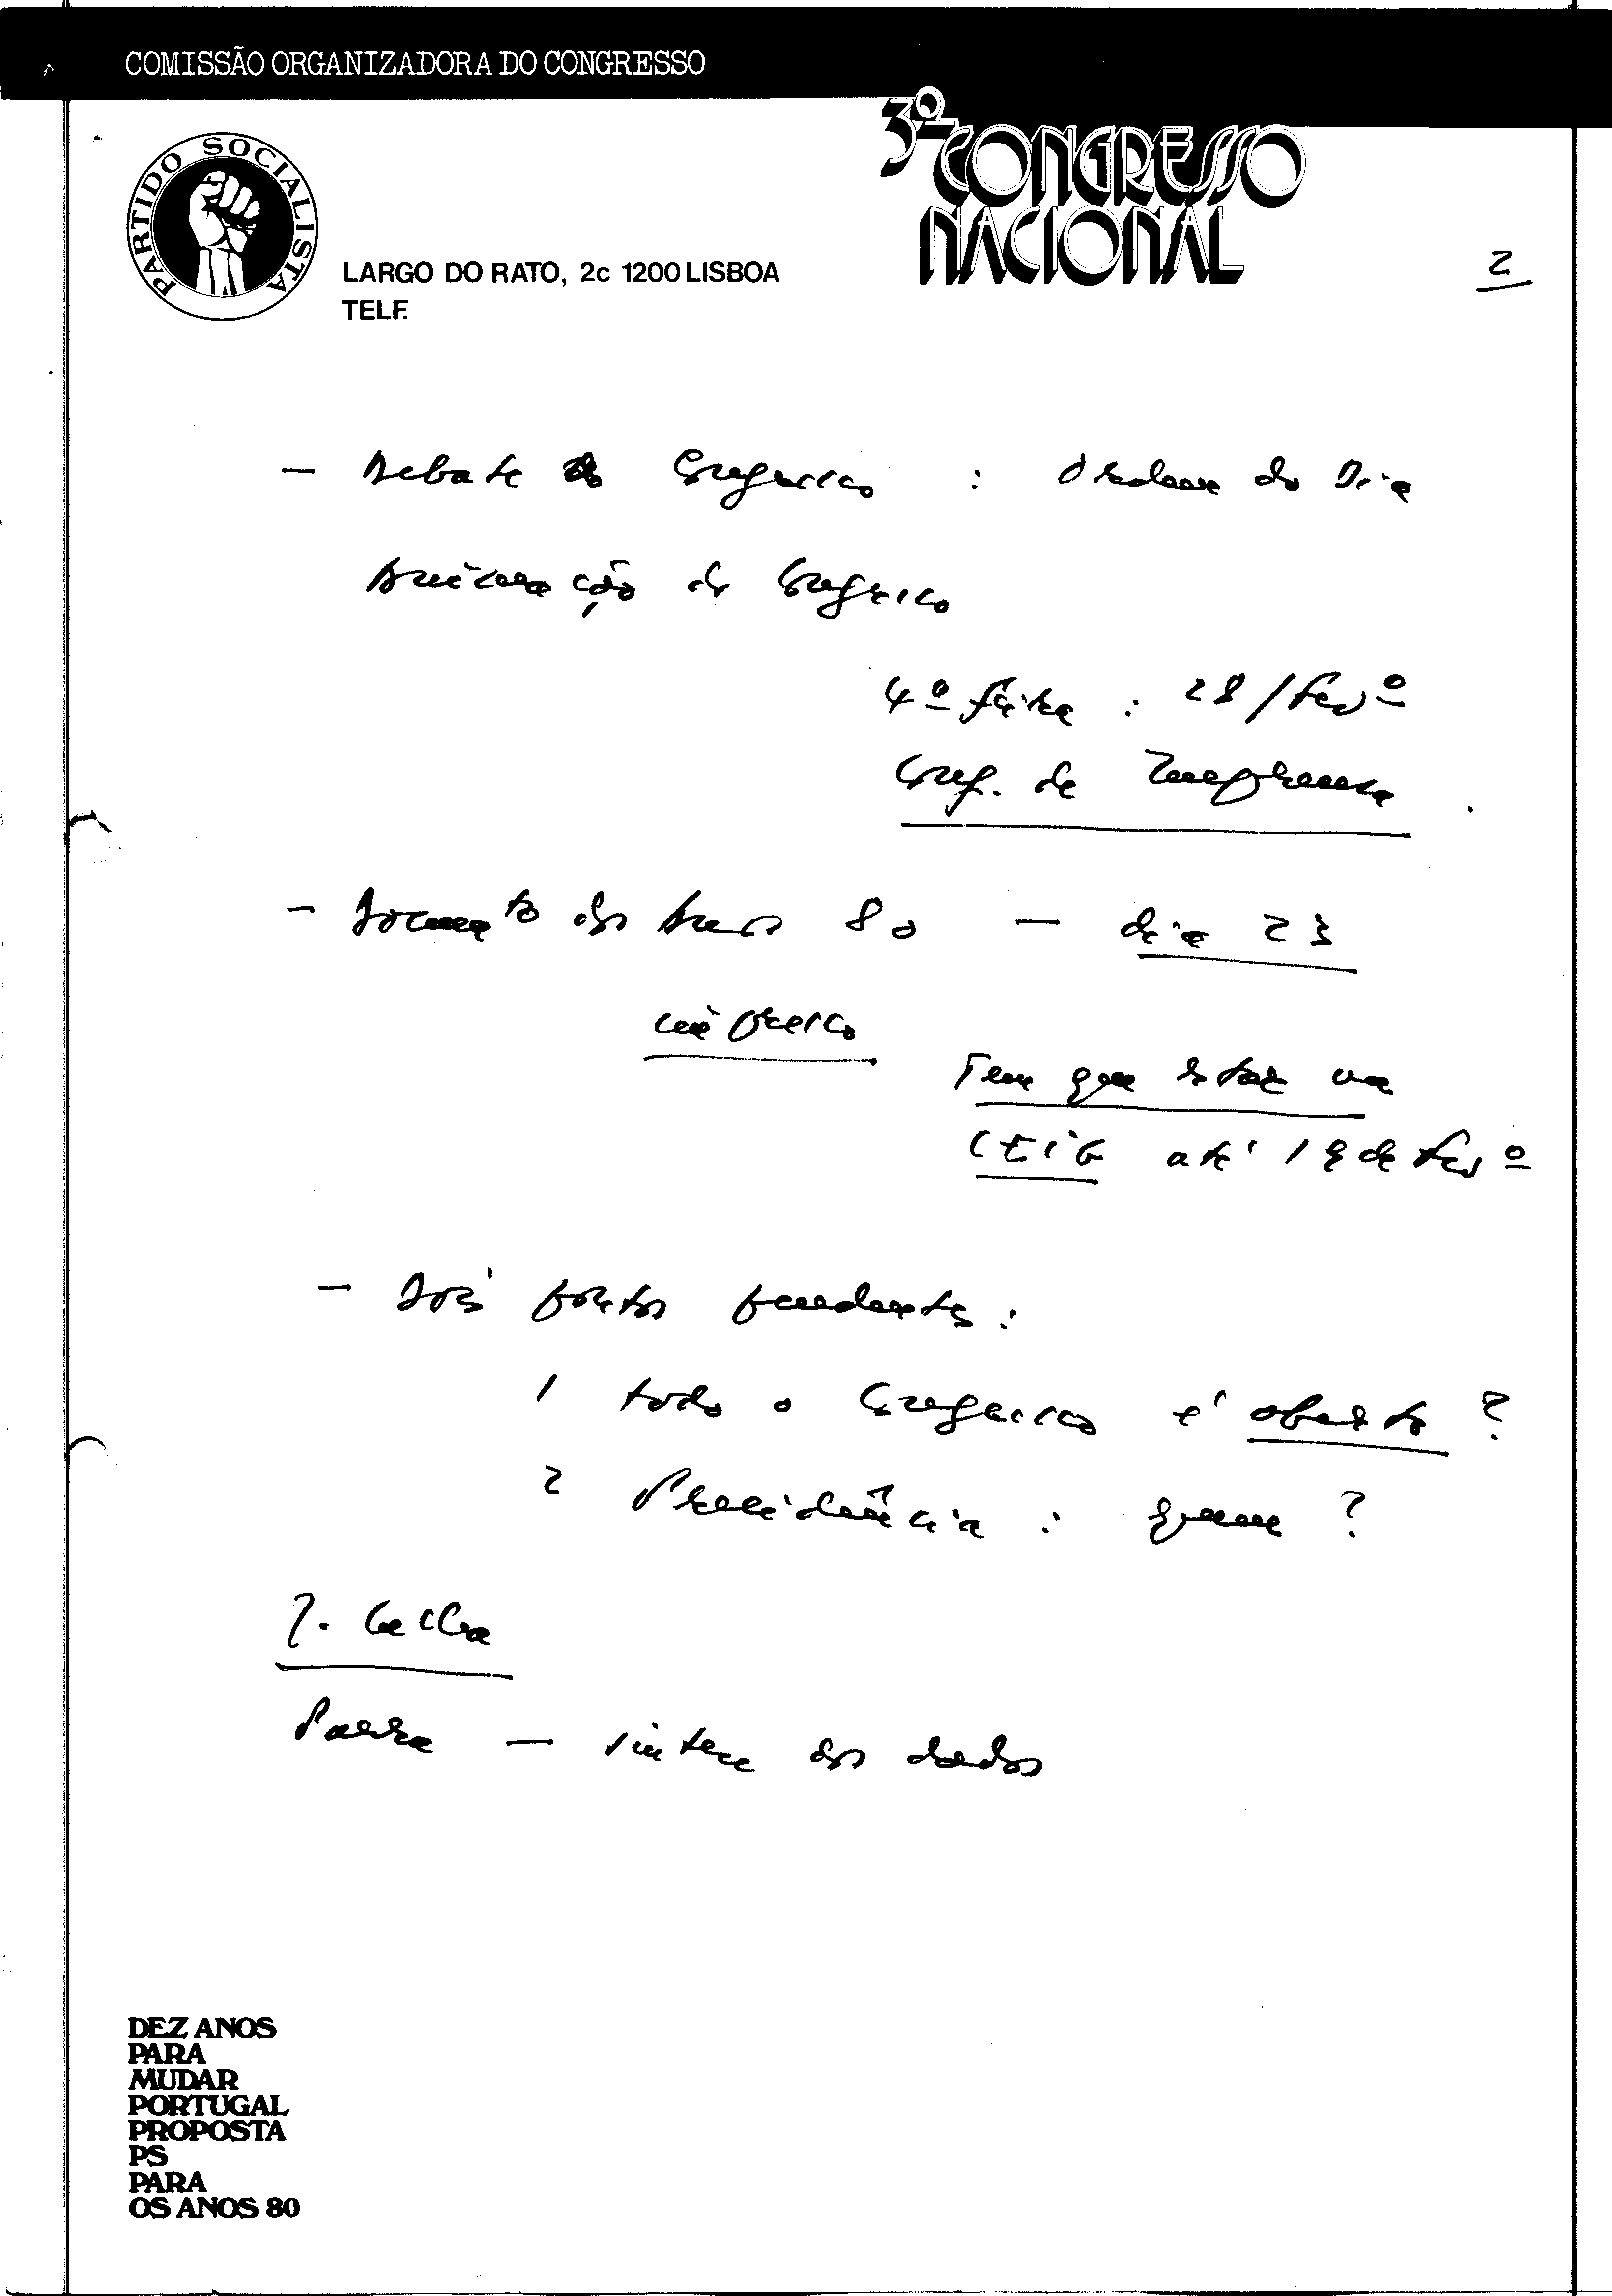 COMISSÃO ORGANIZADORA DO CONGRESSO
3º CONGRESSO
NACIONAL
PARTIDO SOCIALISTA
LARGO DO RATO, 2c 1200 LISBOA
TELF.
2
- Debate do Congresso : Ordem do Dia
Animação do Congresso
4ª feira : 28/Fevº
Conf. de Imprensa
- Documento dos Anos 80 - dia 23
impresso
Tem que estar na
até 18 de Fevº
- Dois pontos pendentes :
1 todo o Congresso é aberto ?
2 Presidência : quem ?
Parra - síntese dos dados
DEZ ANOS
PARA
MUDAR
PORTUGAL
PROPOSTA
PS
PARA
OS ANOS 80